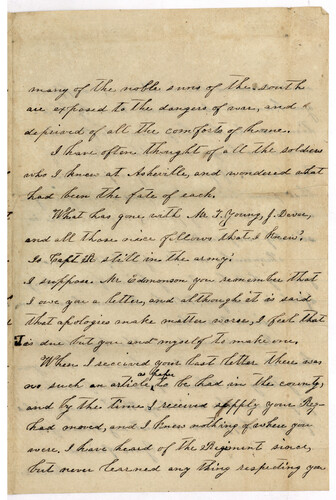 many of the noble suns of the south
are exposed to the dangers of war, and
deprived of all the comforts of home.
I have often thought of all the soldiers
who I knew at Asheville, and wondered what
had been the fate of each.
What has gone with Mr. Young, J.
and all those nice fellows that I knew?
Is Capt still in the army?
I suppose Mr Edmonson you remember that
I owe you a letter, and although it is said
that apologies make matter worse, I feel that
is due but you and myself to make one,
When I received your last letter there was
no such an article as paper to be had in the county,
and by the time I received your Reg
had moved, and I knew nothing of where you
were, I have heard of the Regiment since,
but never learned any thing respecting you